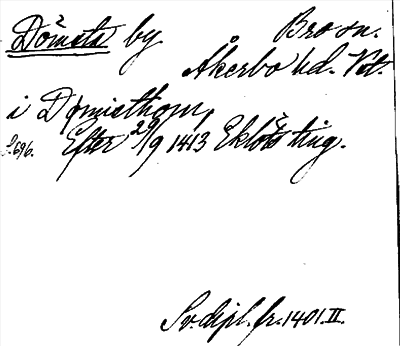 Dömsta by Bro sn.
Åkerbo hd. Vtl.
i Dømisthom,
S. 696. Efter 29/9 1413 Eklöts ting.
Sv. dipl. fr. 1401. II.